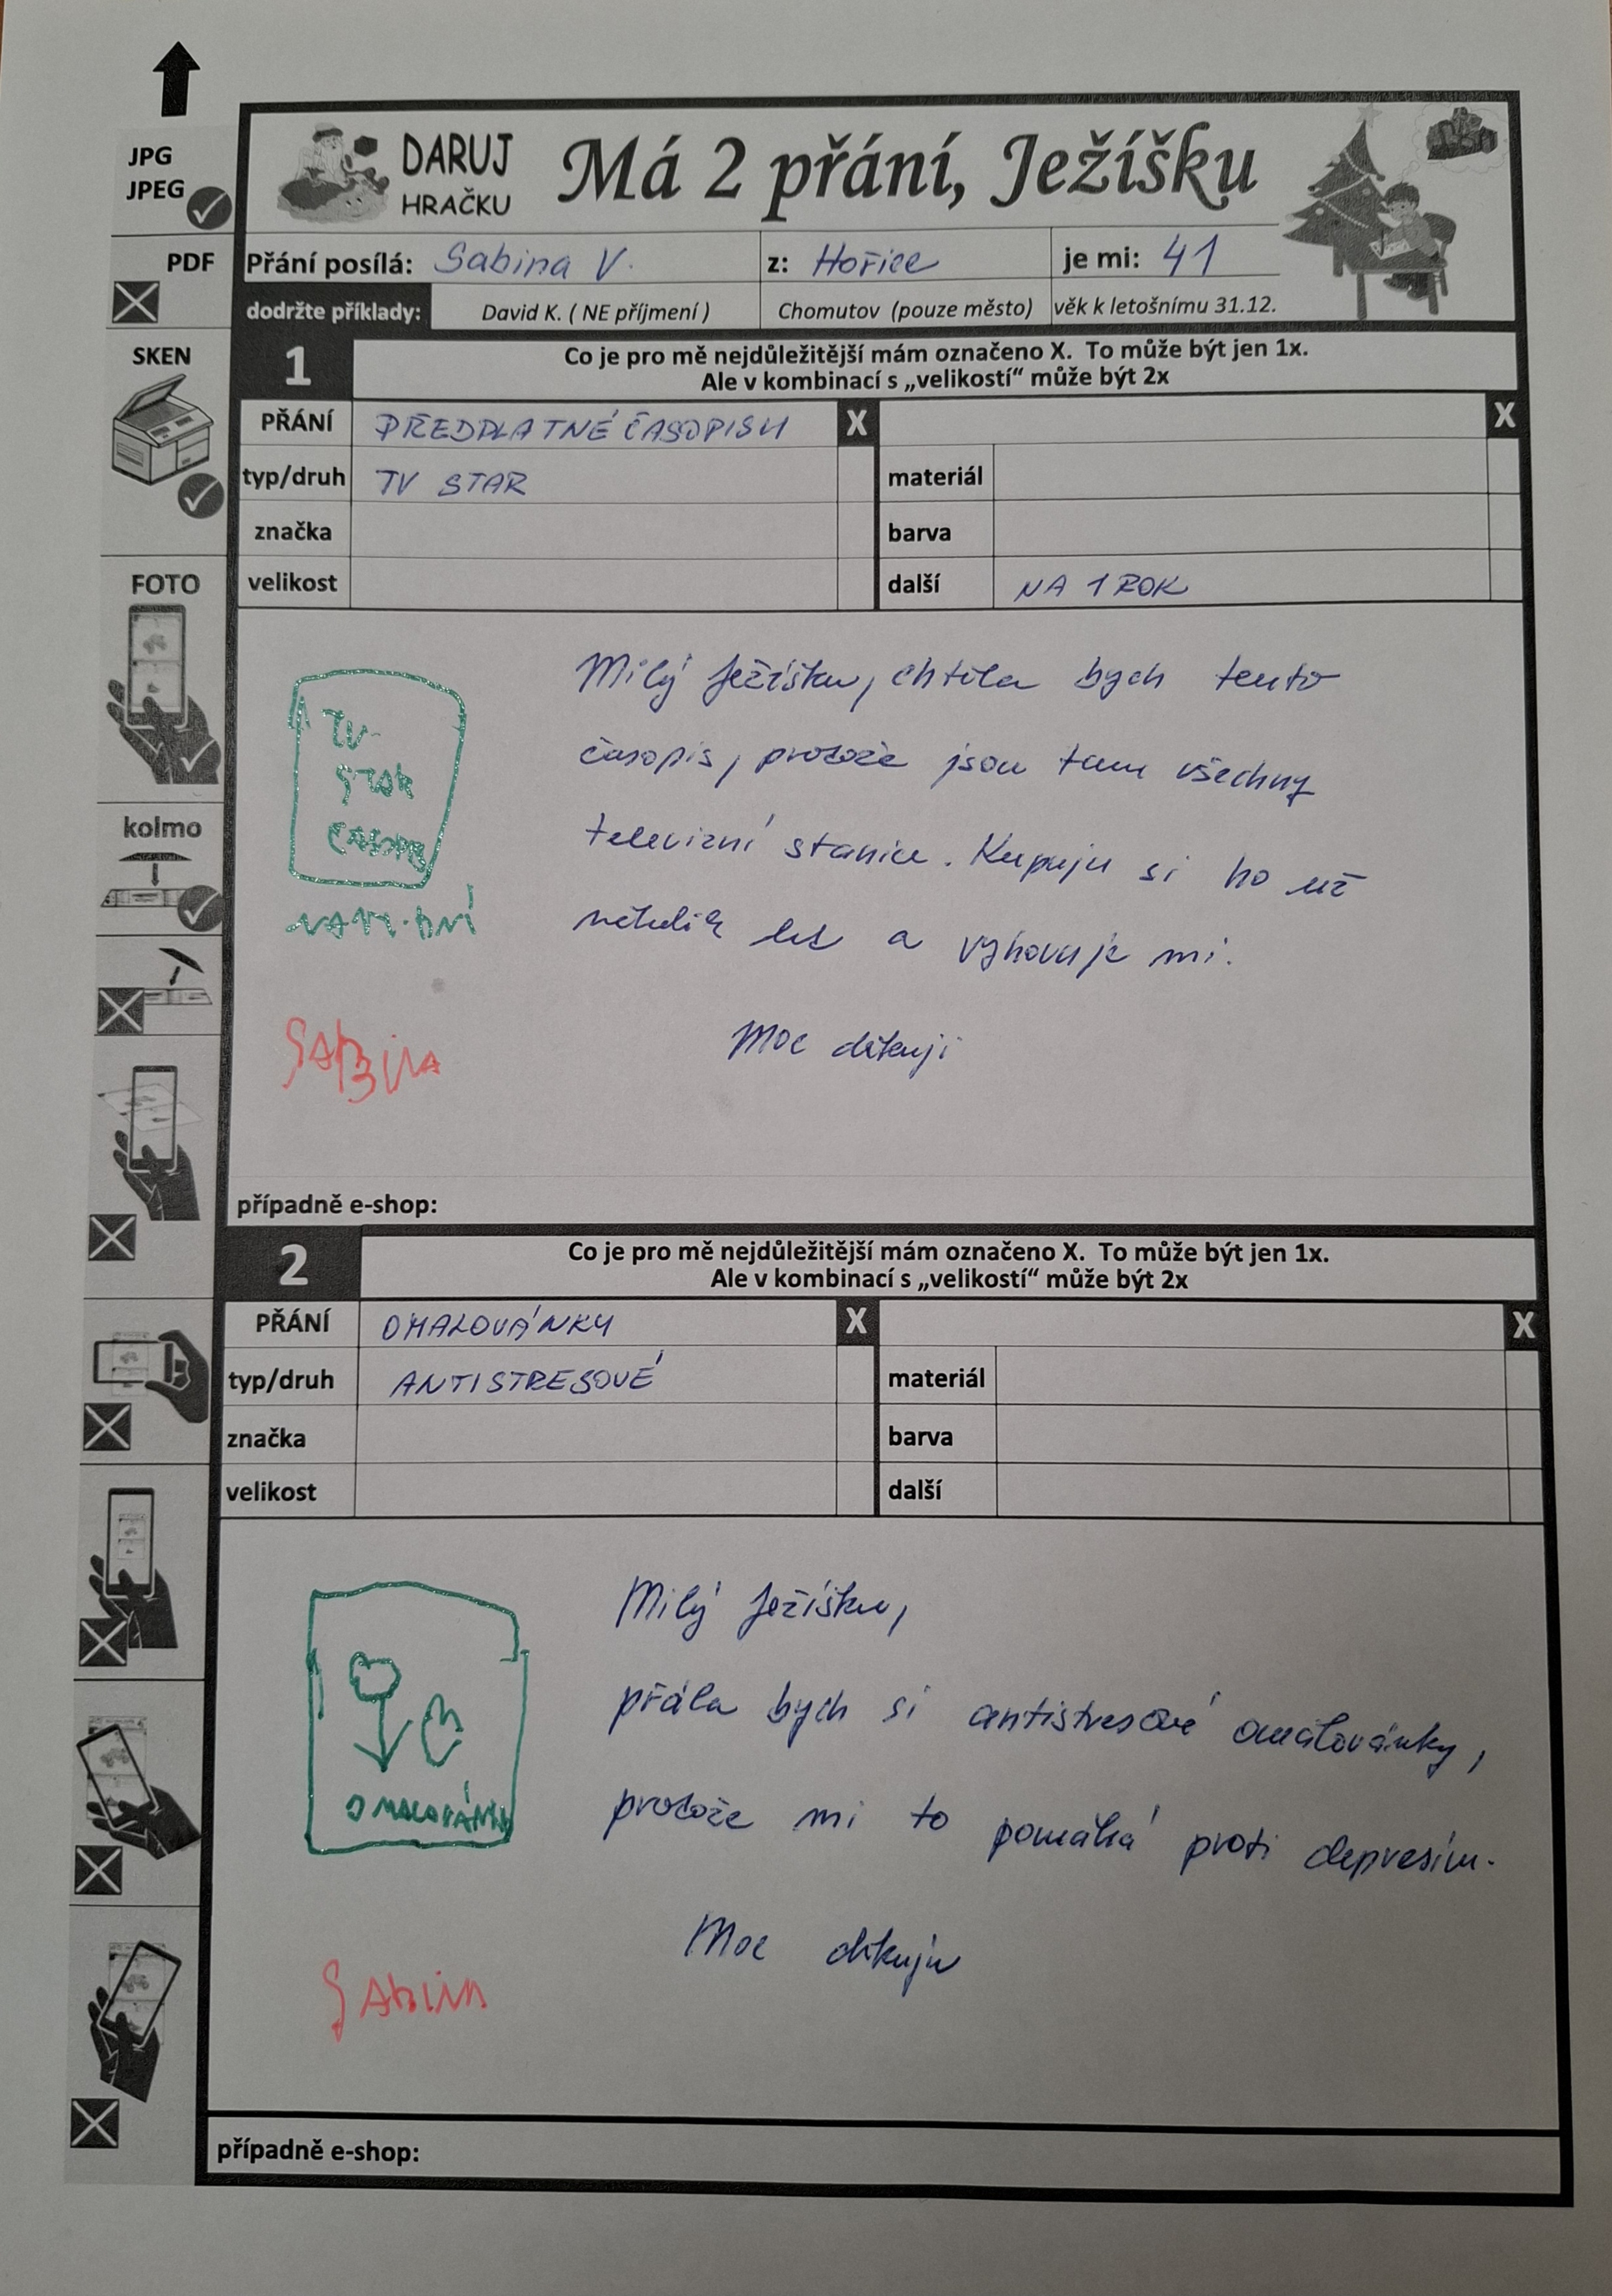 JPG
JPEG
DARUJ
HRAČKU
Má 2 přání, Ježíšku
PDF
Přání posílá: Sabina V. z: Hořice je mi: 41
dodržte příklady: David K. ( NE příjmení ) Chomutov (pouze město) věk k letošnímu 31.12.
SKEN
1
Co je pro mě nejdůležitější mám označeno X. To může být jen 1x.
Ale v kombinací s „velikostí“ může být 2x
PŘÁNÍ PŘEDPLATNÉ ČASOPISU X X
typ/druh TV STAR materiál
značka barva
velikost další NA 1 ROK
FOTO
kolmo
TV
STAR
ČASOPIS
Milý Ježíšku, chtěla bych tento
časopis, protože jsou tam všechny
televizní stanice. Kupuju si ho už
několik let a vyhovuje mi.
Moc děkuji
SABINA
případně e-shop:
2
Co je pro mě nejdůležitější mám označeno X. To může být jen 1x.
Ale v kombinací s „velikostí“ může být 2x
PŘÁNÍ OMALOVÁNKY X X
typ/druh ANTISTRESOVÉ materiál
značka barva
velikost další
OMALOVÁNKY
Milý Ježíšku,
přála bych si antistresové omalovánky,
protože mi to pomáhá proti depresím.
Moc děkuju
SABINA
případně e-shop: